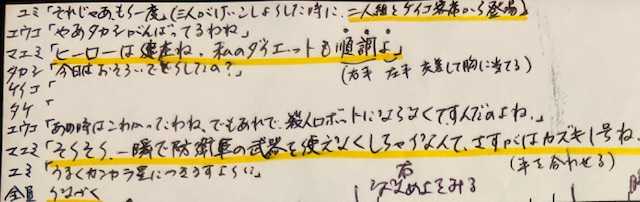 ユミ「それじゃあもう一度」(三人がけいこしようとした時に、二人組とケイコ客席から登場)
ユウコ「やあタカシがんばってるわね」
マユミ「ヒーローは健在ね、私のダイエットも順調よ」
タカシ「今日はおそろいでどうしたの?」
(右手 左手 交差して胸に当てる)
ケイコ「
タケ「
ユウコ「あの時はこわかったわね、でもあれで、殺人ロボットにならなくてすんだのよね。」
マユミ「そうそう、一瞬で防衛軍の武器を使えなくしちゃうなんて、さすがはカズキ1号ね、
(手を合わせる)
ユミ「うまくカンカラ星につきますように」
全員 うなづく
右
ななめ上をみる